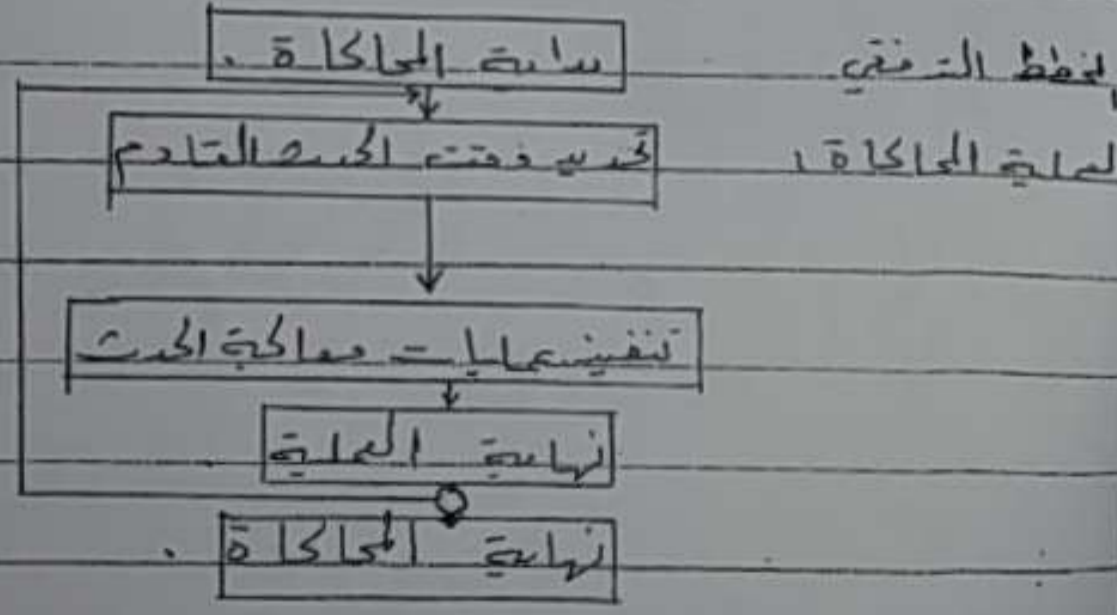 المخطط التدفقي
بداية المحاكاة .
لعملية المحاكاة .
تحديد وقت الحدث القادم
تنفيذ عمليات معالجة الحدث
نهاية العملية
نهاية المحاكاة .